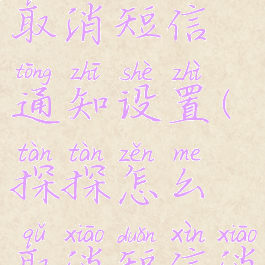 取消短信
tōng zhī shè zhì
通知设置(
tàn tàn zěn me
探探怎么
qǔ xiāo duǎn xìn xiāo
取消短信消